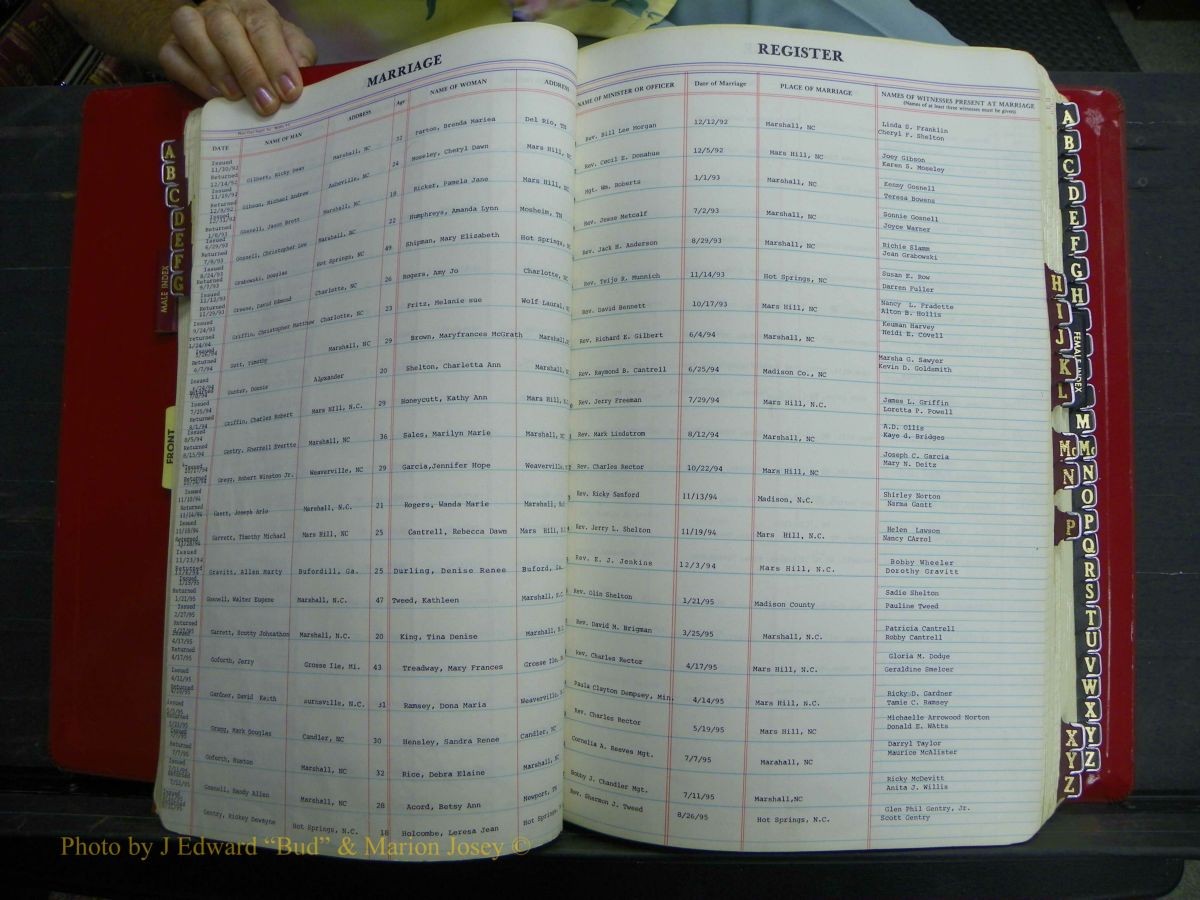 MARRIAGE
REGISTER
DATE NAME OF MAN ADDRESS Age NAME OF WOMAN ADDRESS NAME OF MINISTER OR OFFICER Date of Marriage PLACE OF MARRIAGE NAMES OF WITNESSES PRESENT AT MARRIAGE
(Names of at least three witnesses must be given)
Gilbert, Ricky Dean Marshall, NC 32 Parton, Brenda Mariea Del Rio, TN Rev. Bill Lee Morgan 12/12/92 Marshall, NC Linda S. Franklin
Cheryl F. Shelton
Gibson, Michael Andrew Asheville, NC 24 Moseley, Cheryl Dawn Mars Hill, Rev. Cecil E. Donahue 12/5/92 Mars Hill, NC Joey Gibson
Karen S. Moseley
Gosnell, Jason Brett Marshall, NC 18 Ricker, Pamela Jane Mars Hill, Mgt. Wm. Roberts 1/1/93 Marshall, NC Kenny Gosnell
Teresa Bowens
Gosnell, Christopher Lee Marshall, NC 22 Humphreys, Amanda Lynn Mosheim, TN Rev. Jesse Metcalf 7/2/93 Marshall, NC Sonnie Gosnell
Joyce Warner
Grabowski, Douglas Hot Springs, NC 49 Shipman, Mary Elizabeth Hot Springs, Rev. Jack H. Anderson 8/29/93 Marshall, NC Richie Slamm
Joan Grabowski
Greene, David Edmond Charlotte, NC 26 Rogers, Amy Jo Charlotte, Rev. Teijo R. Munnich 11/14/93 Hot Springs, NC Susan E. Row
Darren Fuller
Griffin, Christopher Matthew Charlotte, NC 23 Fritz, Melanie sue Wolf Laurel, Rev. David Bennett 10/17/93 Mars Hill, NC Nancy L. Fradette
Alton B. Hollis
Timothy Marshall, NC 29 Brown, Maryfrances McGrath Marshall, Rev. Richard E. Gilbert 6/4/94 Marshall, NC Keuman Harvey
Heidi E. Covell
Gunter, Donnie Alexander 20 Shelton, Charletta Ann Marshall, Rev. Raymond B. Cantrell 6/25/94 Madison Co., NC Marsha G. Sawyer
Kevin D. Goldsmith
Griffin, Charles Robert Mars Hill, N.C. 29 Honeycutt, Kathy Ann Mars Hill, Rev. Jerry Freeman 7/29/94 Mars Hill, NC James L. Griffin
Loretta P. Powell
Gentry, Sherrell Evertte Marshall, NC 36 Sales, Marilyn Marie Marshall, Rev. Mark Lindstrom 8/12/94 Marshall, NC A.D. Ollis
Kaye d. Bridges
Gregg, Robert Winston Jr. Weaverville, NC 29 Garcia,Jennifer Hope Weaverville, Rev. Charles Rector 10/22/94 Mars Hill, NC Joseph C. Garcia
Mary N. Deitz
Gantt, Joseph Arlo Marshall, N.C. 21 Rogers, Wanda Marie Marshall, Rev. Ricky Sanford 11/13/94 Madison, N.C. Shirley Norton
Narma Gantt
Garrett, Timothy Michael Mars Hill, NC 25 Cantrell, Rebecca Dawn Mars Hill, Rev. Jerry L. Shelton 11/19/94 Mars Hill, N.C. Helen Lawson
Nancy CArrol
Gravitt, Allen Marty Bufordill, Ga. 25 Durling, Denise Renee Buford, Ga. Rev. E. J. Jenkins 12/3/94 Mars Hill, N.C. Bobby Wheeler
Dorothy Gravitt
Gosnell, Walter Eugene Marshall, N.C. 47 Tweed, Kathleen Marshall, Rev. Olin Shelton 1/21/95 Madison County Sadie Shelton
Pauline Tweed
Garrett, Scotty Johnathon Marshall, N.C. 20 King, Tina Denise Marshall, Rev. David M. Brigman 3/25/95 Marshall, N.C. Patricia Cantrell
Robby Cantrell
Goforth, Jerry Grosse Ile, Mi. 43 Treadway, Mary Frances Grosse Ile, Rev. Charles Rector 4/17/95 Mars Hill, N.C. Gloria M. Dodge
Geraldine Smelcer
Gardner, David Keith Burnsville, N.C. 31 Ramsey, Dona Maria Weaverville, Paula Clayton Dempsey, Min. 4/14/95 Mars Hill, N.C. Ricky D. Gardner
Tamie C. Ramsey
Gragg, Mark Douglas Candler, NC 30 Hensley, Sandra Renee Candler, NC Rev. Charles Rector 5/19/95 Mars Hill, NC Michaelle Arrowood Norton
Donald E. WAtts
Goforth, Huston Marshall, NC 32 Rice, Debra Elaine Marshall, Cornelia A. Reeves Mgt. 7/7/95 Marahall, NC Darryl Taylor
Maurice McAlister
Gosnell, Randy Allen Marshall, NC 28 Acord, Betsy Ann Newport, TN Bobby J. Chandler Mgt. 7/11/95 Marshall,NC Ricky McDevitt
Anita J. Willis
Gentry, Rickey Dewayne Hot Springs, N.C. 18 Holcombe, Leresa Jean Hot Springs, Rev. Sharmon J. Tweed 8/26/95 Hot Springs, N.C. Glen Phil Gentry, Jr.
Scott Gentry
MALE INDEX
A
B
C
D
E
F
G
FRONT
FEMALE INDEX
A
B
C
D
E
F
G
H
M
Mc
N
O
P
Q
R
S
T
U
V
W
X
Y
Z
H
I
J
K
L
Mc
N
P
XYZ
Photo by J Edward “Bud” & Marion Josey ©